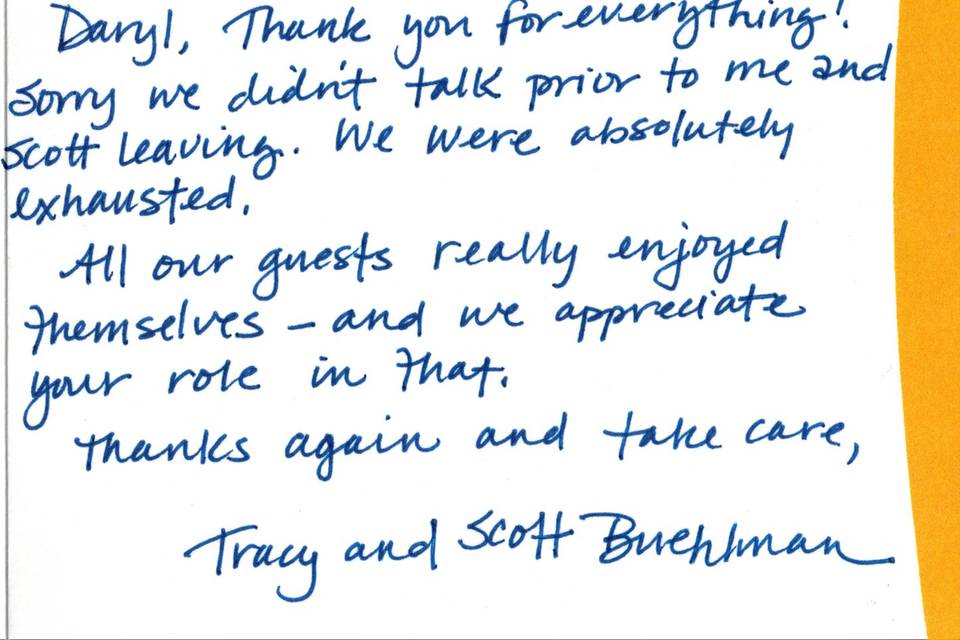 Daryl, Thank you for everything!
Sorry we didn't talk prior to me and
Scott leaving. We were absolutely
exhausted.
All our guests really enjoyed
themselves – and we appreciate
your role in that.
Thanks again and take care,
Tracy and Scott Buehlman